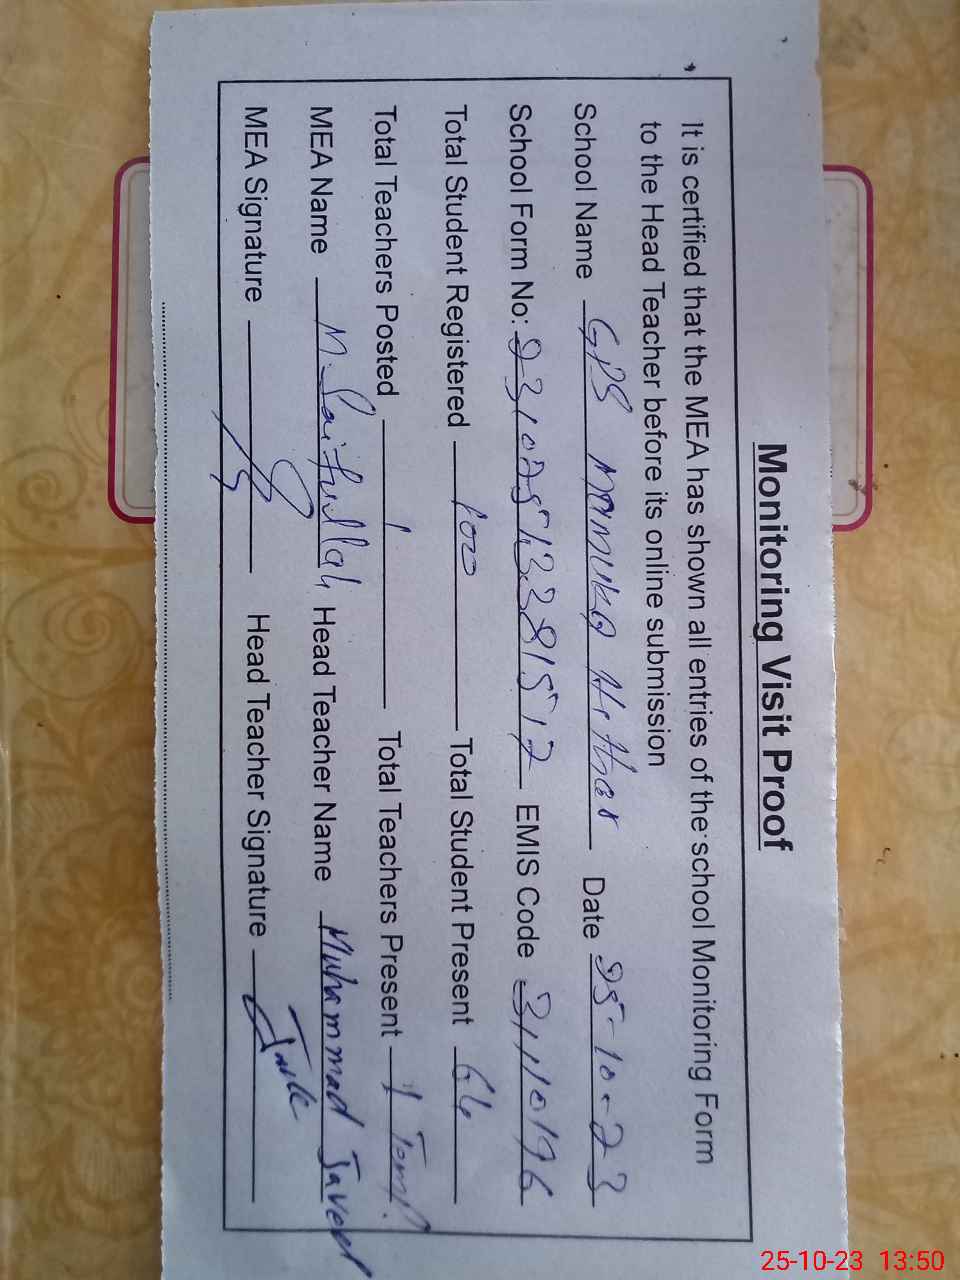 Monitoring Visit Proof
It is certified that the MEA has shown all entries of the school Monitoring Form
to the Head Teacher before its online submission
School Name GPS Date 25-10-23
School Form No: EMIS Code 31110196
Total Student Registered 100 Total Student Present 64
Total Teachers Posted 1 Total Teachers Present 1
MEA Name M. Saifullah Head Teacher Name Muhammad Javed
MEA Signature Head Teacher Signature
25-10-23 13:50